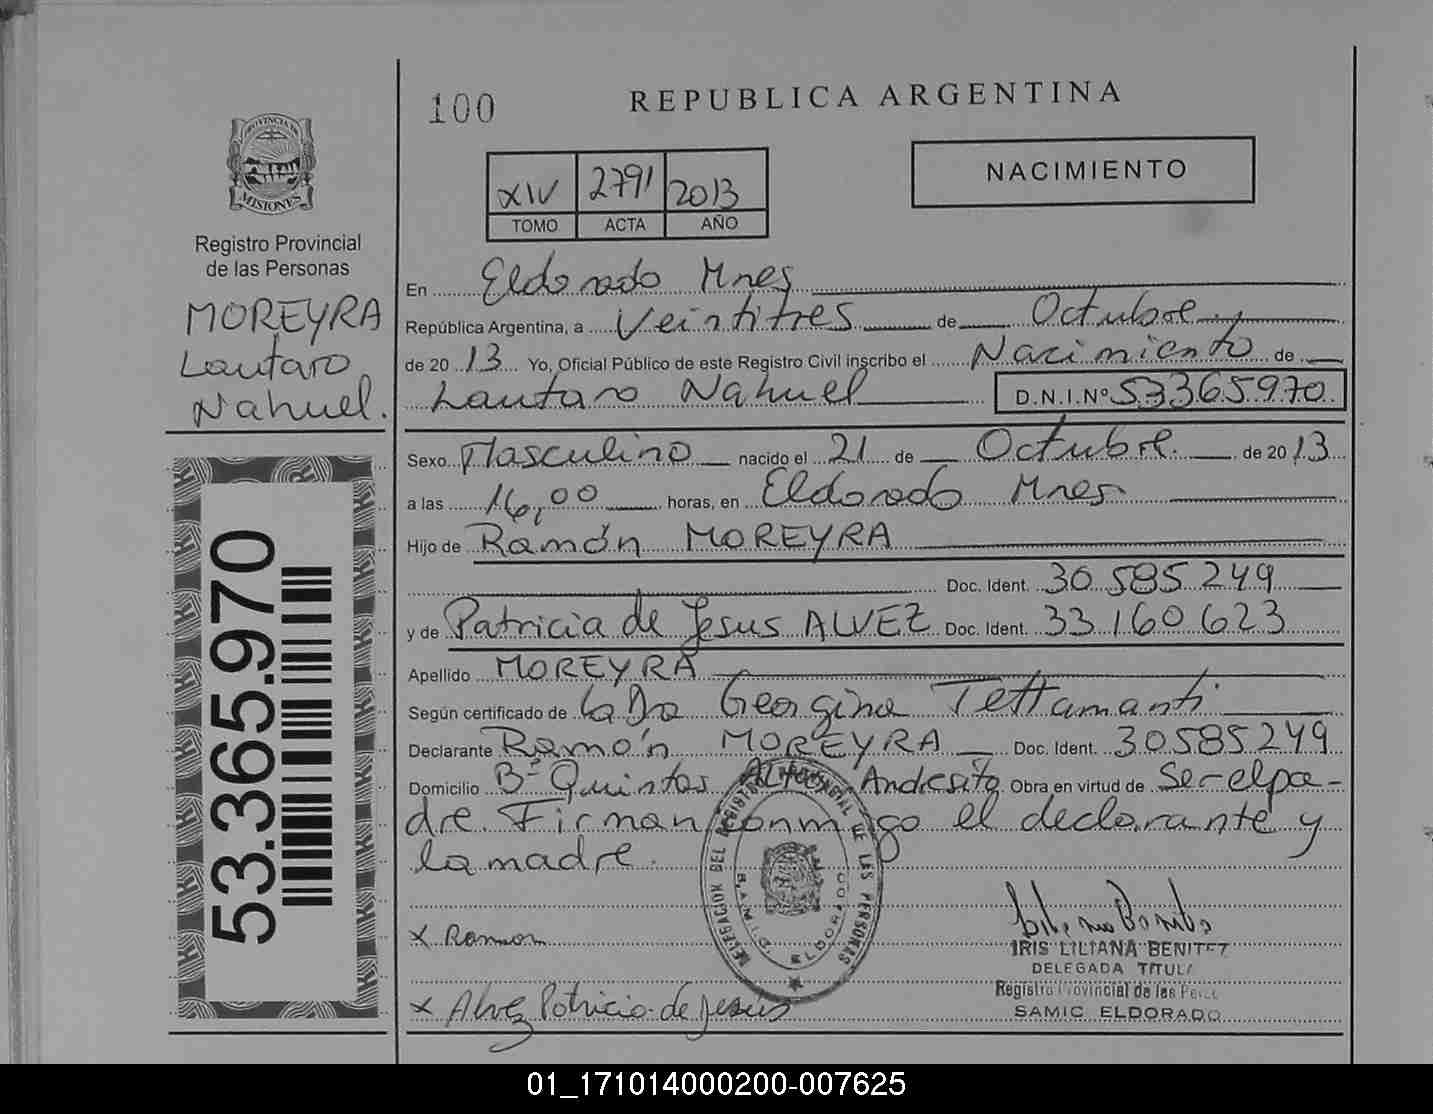 100
REPUBLICA ARGENTINA
PROVINCIA DE
MISIONES
Registro Provincial
de las Personas
MOREYRA
Lautaro
Nahuel.
53.365.970
XIV 2791 2013
TOMO ACTA AÑO
NACIMIENTO
En Eldorado Mnes
República Argentina, a Veintitres de Octubre
de 2013 Yo, Oficial Público de este Registro Civil inscribo el Nacimiento de
Lautaro Nahuel D.N.I.Nº 53365970
Sexo Masculino nacido el 21 de Octubre de 2013
a las 16,00 horas, en Eldorado Mnes
Hijo de Ramón MOREYRA
Doc. Ident. 30 585 249
y de Patricia de Jesus ALVEZ Doc. Ident. 33 160 623
Apellido MOREYRA
Según certificado de la Dra Georgina Tettamanti
Declarante Ramón MOREYRA Doc. Ident. 30585249
Domicilio Bº Quintas Andresito Obra en virtud de Ser el pa-
dre. Firman conmigo el declarante y
la madre.
DELEGACION DEL REGISTRO PROVINCIAL DE LAS PERSONAS
ELDORADO
x Ramon
x Alvez Patricia de Jesús
IRIS LILIANA BENITEZ
DELEGADA TITUL
Registro Provincial de las Pers
SAMIC ELDORADO
01_171014000200-007625